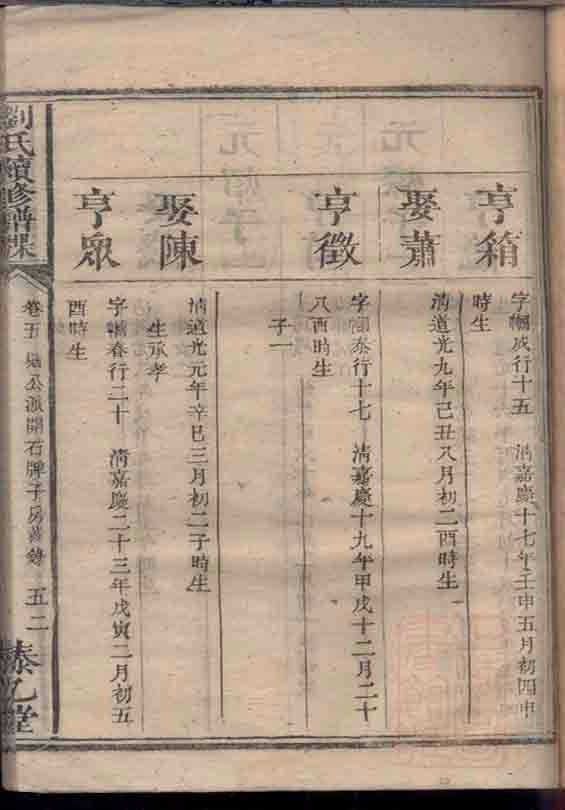 亨箱
字幗成行十五 清嘉慶十七年壬申五月初四申
時生
娶蕭
清道光九年己丑八月初二酉時生
亨徵
字幗泰行十七 清嘉慶十九年甲戌十二月二十
八酉時生
子一
娶陳
清道光元年辛巳三月初二子時生
生承孝
亨眾
字幗春行二十 清嘉慶二十三年戊寅二月初五
酉時生
劉氏續修譜牒
卷五 公派開石牌子房齒錄 五二